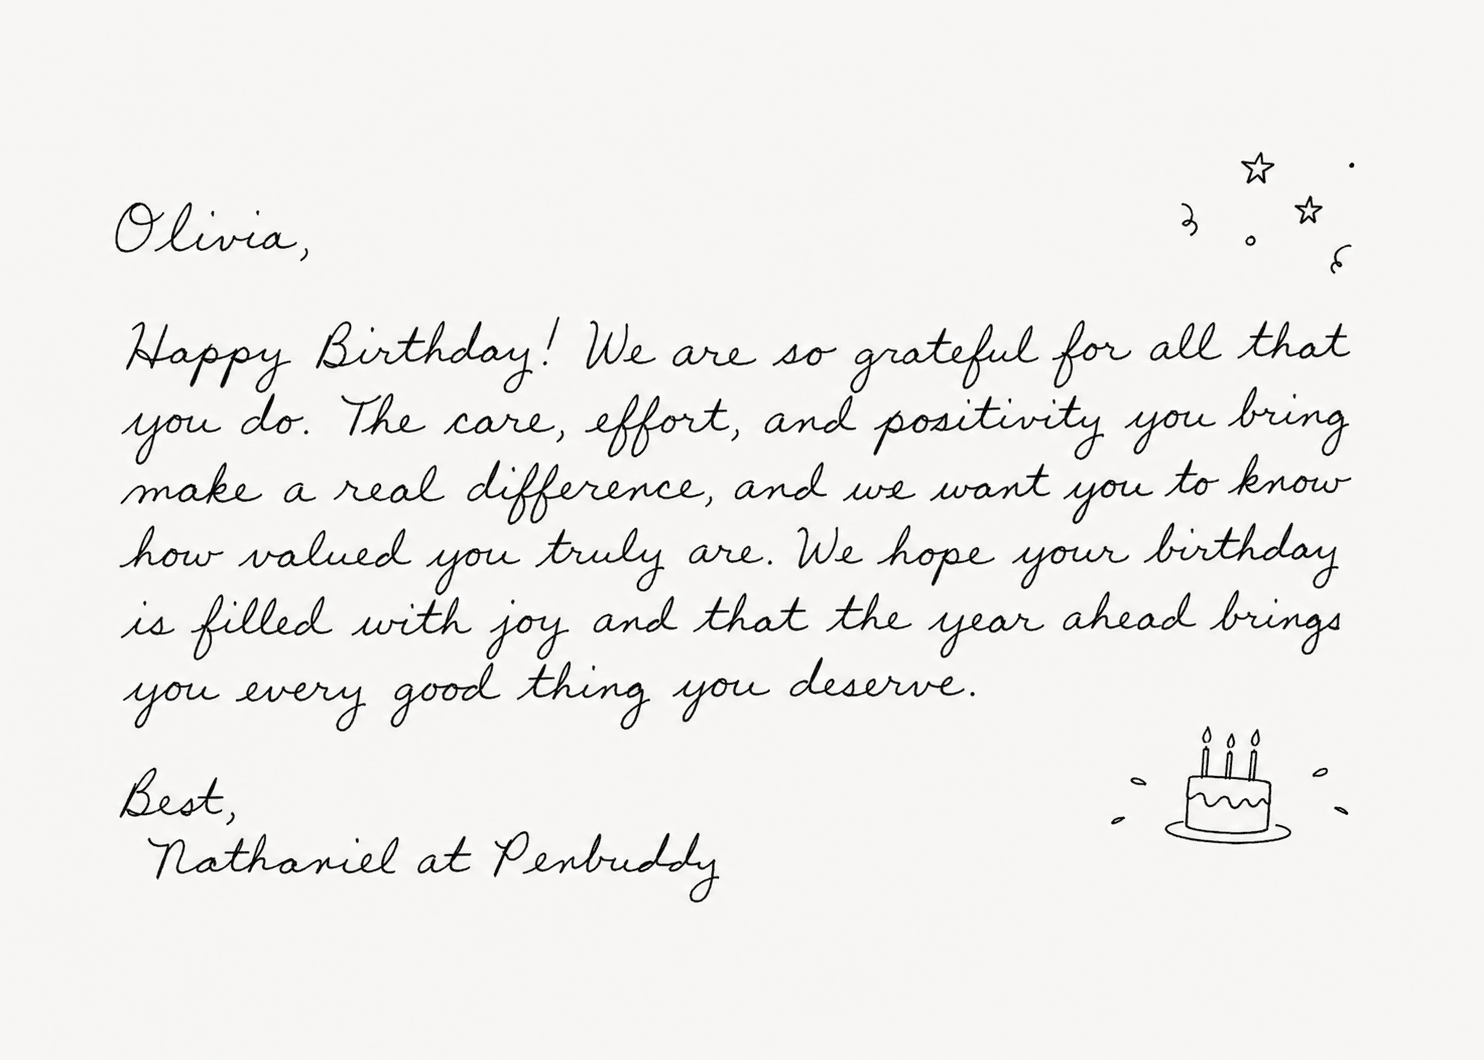 Olivia,
Happy Birthday! We are so grateful for all that
you do. The care, effort, and positivity you bring
make a real difference, and we want you to know
how valued you truly are. We hope your birthday
is filled with joy and that the year ahead brings
you every good thing you deserve.
Best,
Nathaniel at Penbuddy